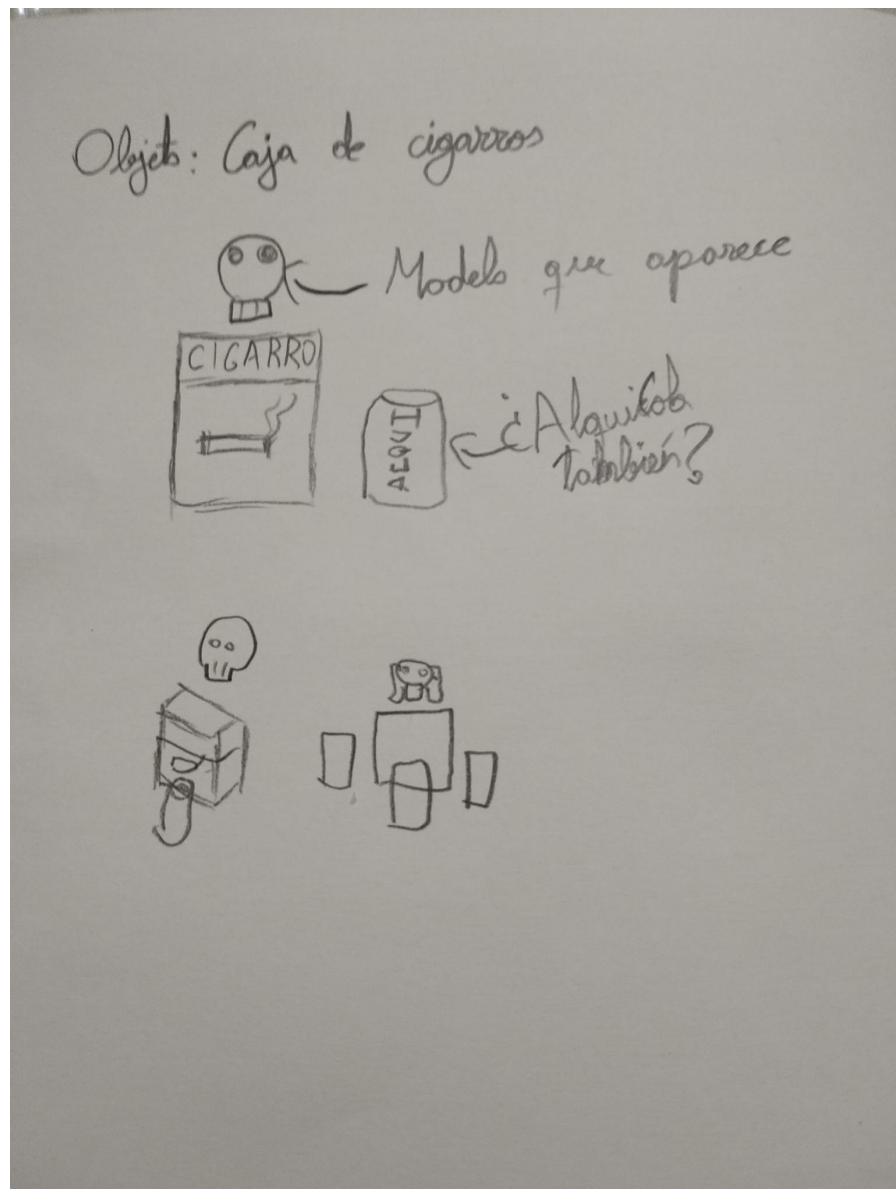 Objeto: Caja de cigarros
Modelo que aparece
CIGARRO
ALQUI
¿Alquikola
también?